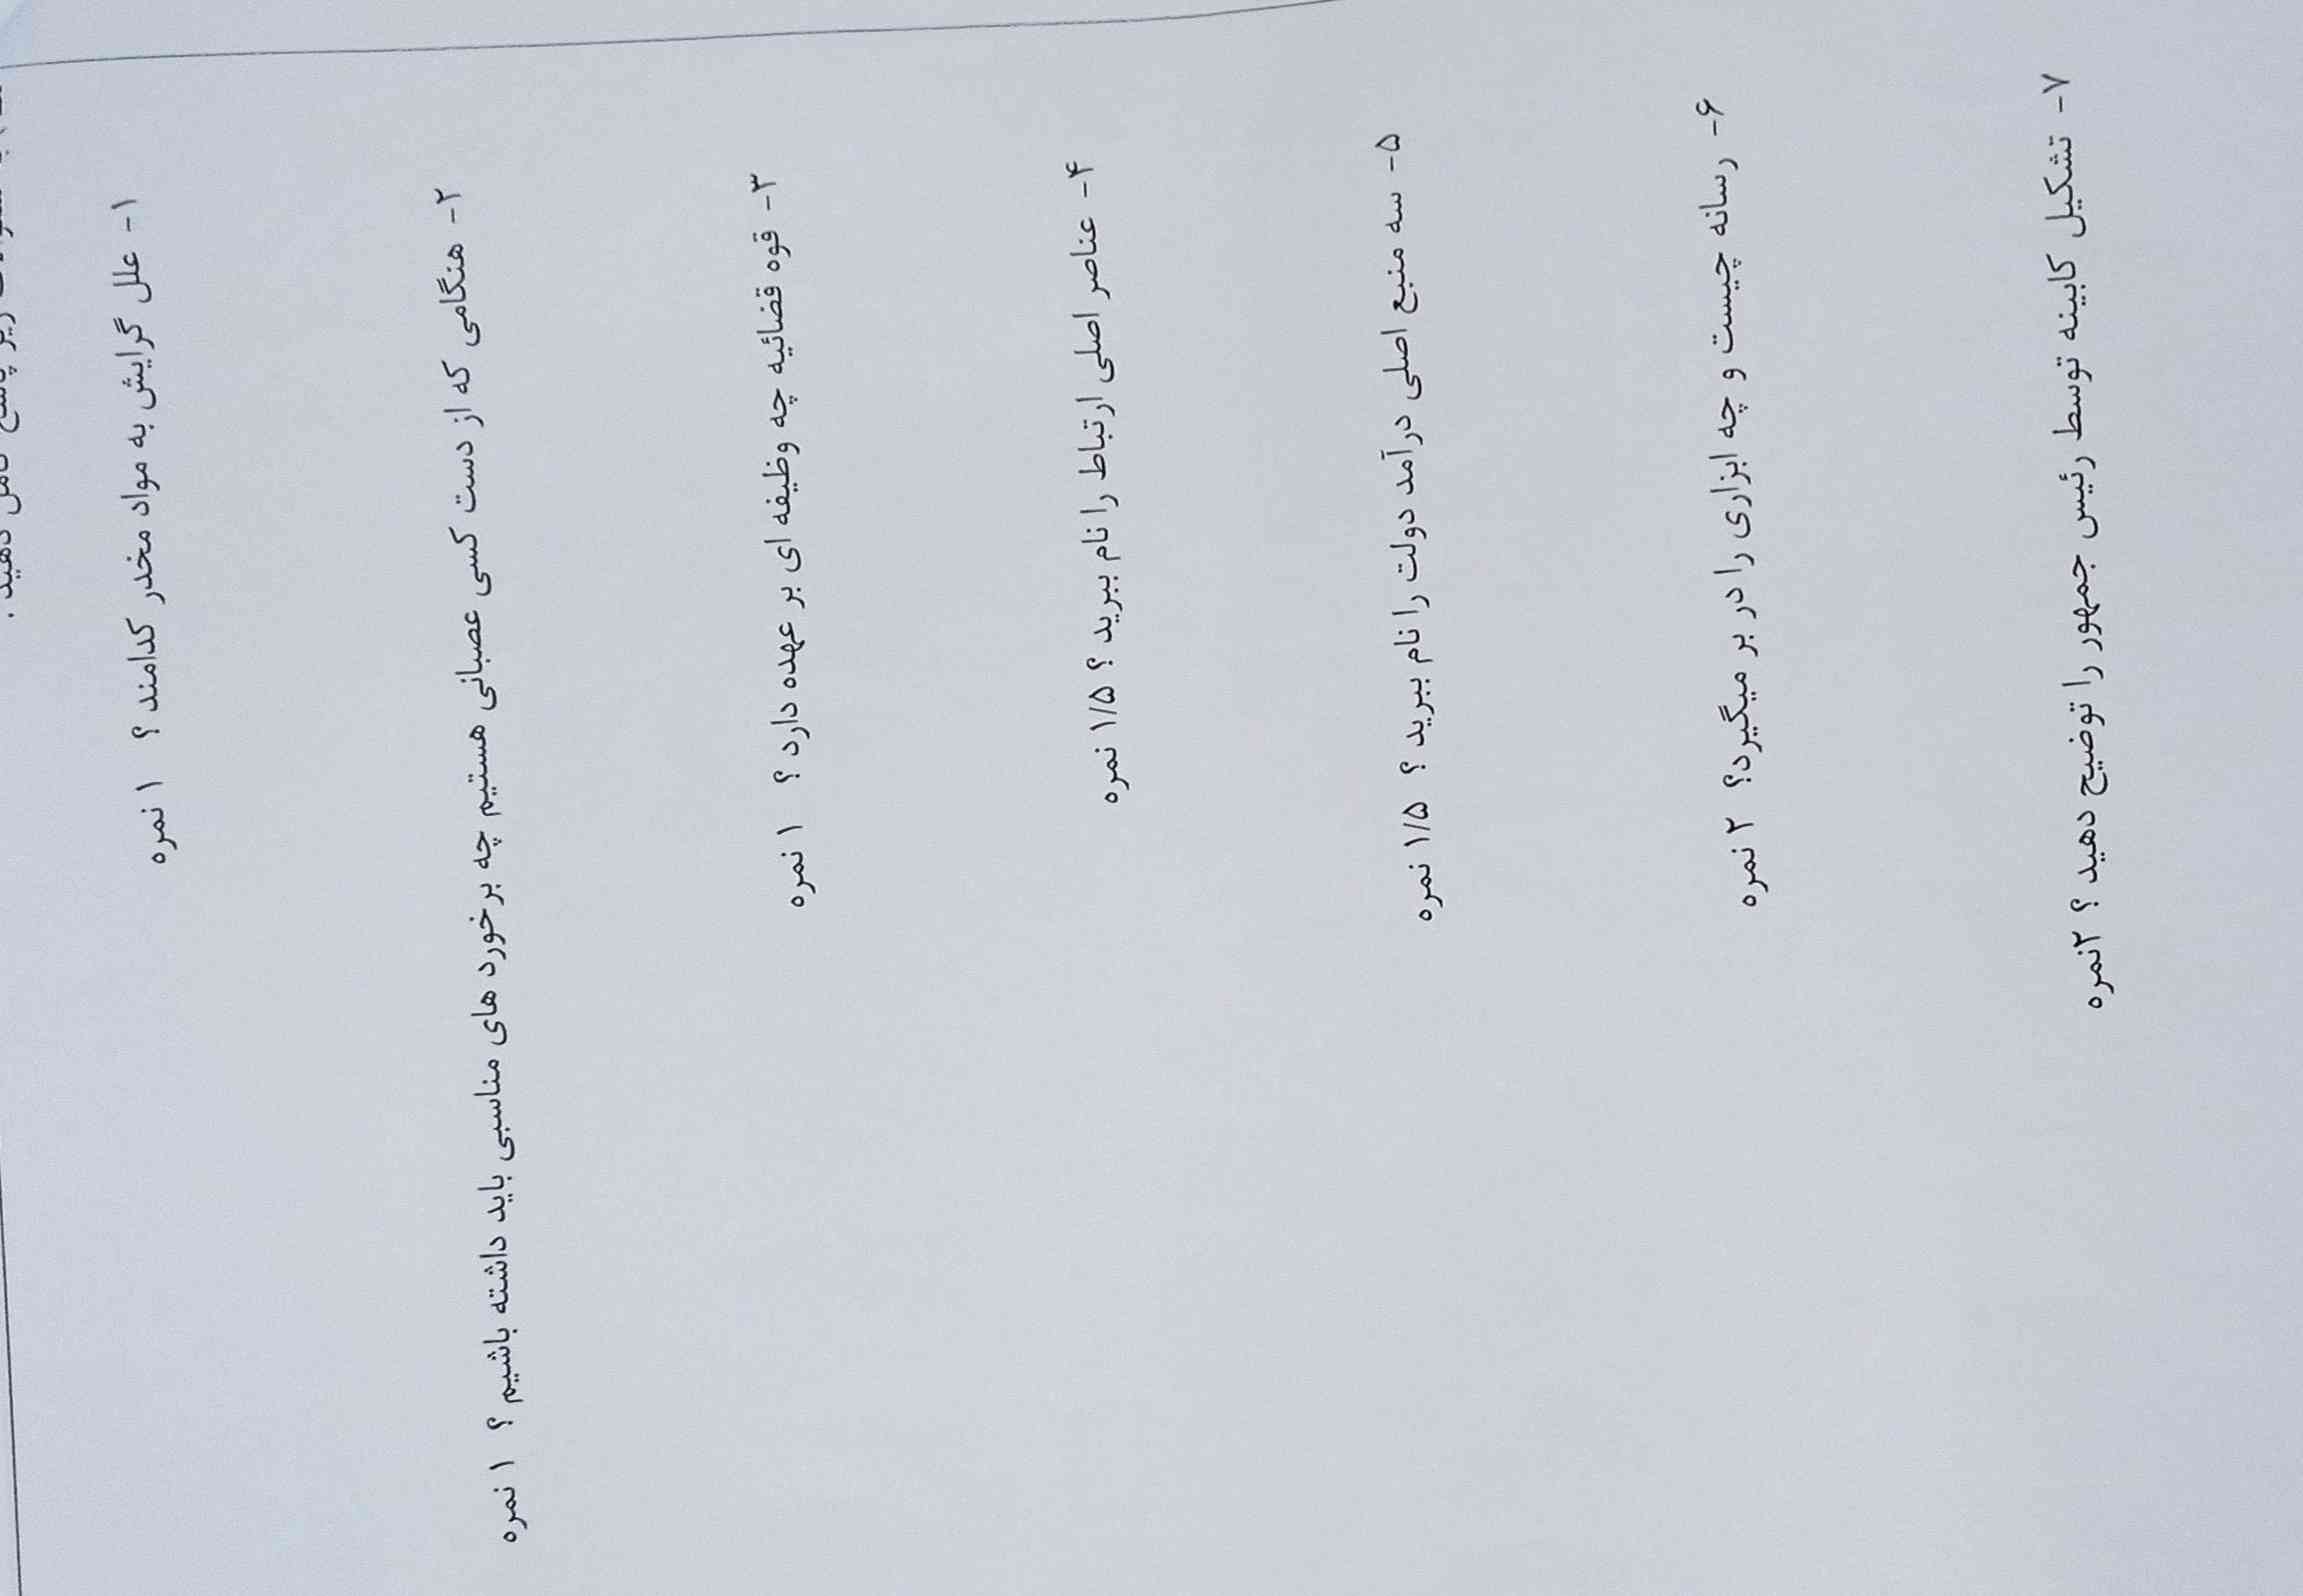 زیر پاسخ کامل دهید .
۱- علل گرایش به مواد مخدر کدامند ؟ ۱ نمره
۲- هنگامی که از دست کسی عصبانی هستیم چه برخورد های مناسبی باید داشته باشیم ؟ ۱ نمره
۳- قوه قضائیه چه وظیفه ای بر عهده دارد ؟ ۱ نمره
۴- عناصر اصلی ارتباط را نام ببرید ؟ ۱/۵ نمره
۵- سه منبع اصلی درآمد دولت را نام ببرید ؟ ۱/۵ نمره
۶- رسانه چیست و چه ابزاری را در بر میگیرد؟ ۲ نمره
۷- تشکیل کابینه توسط رئیس جمهور را توضیح دهید ؟ ۲نمره